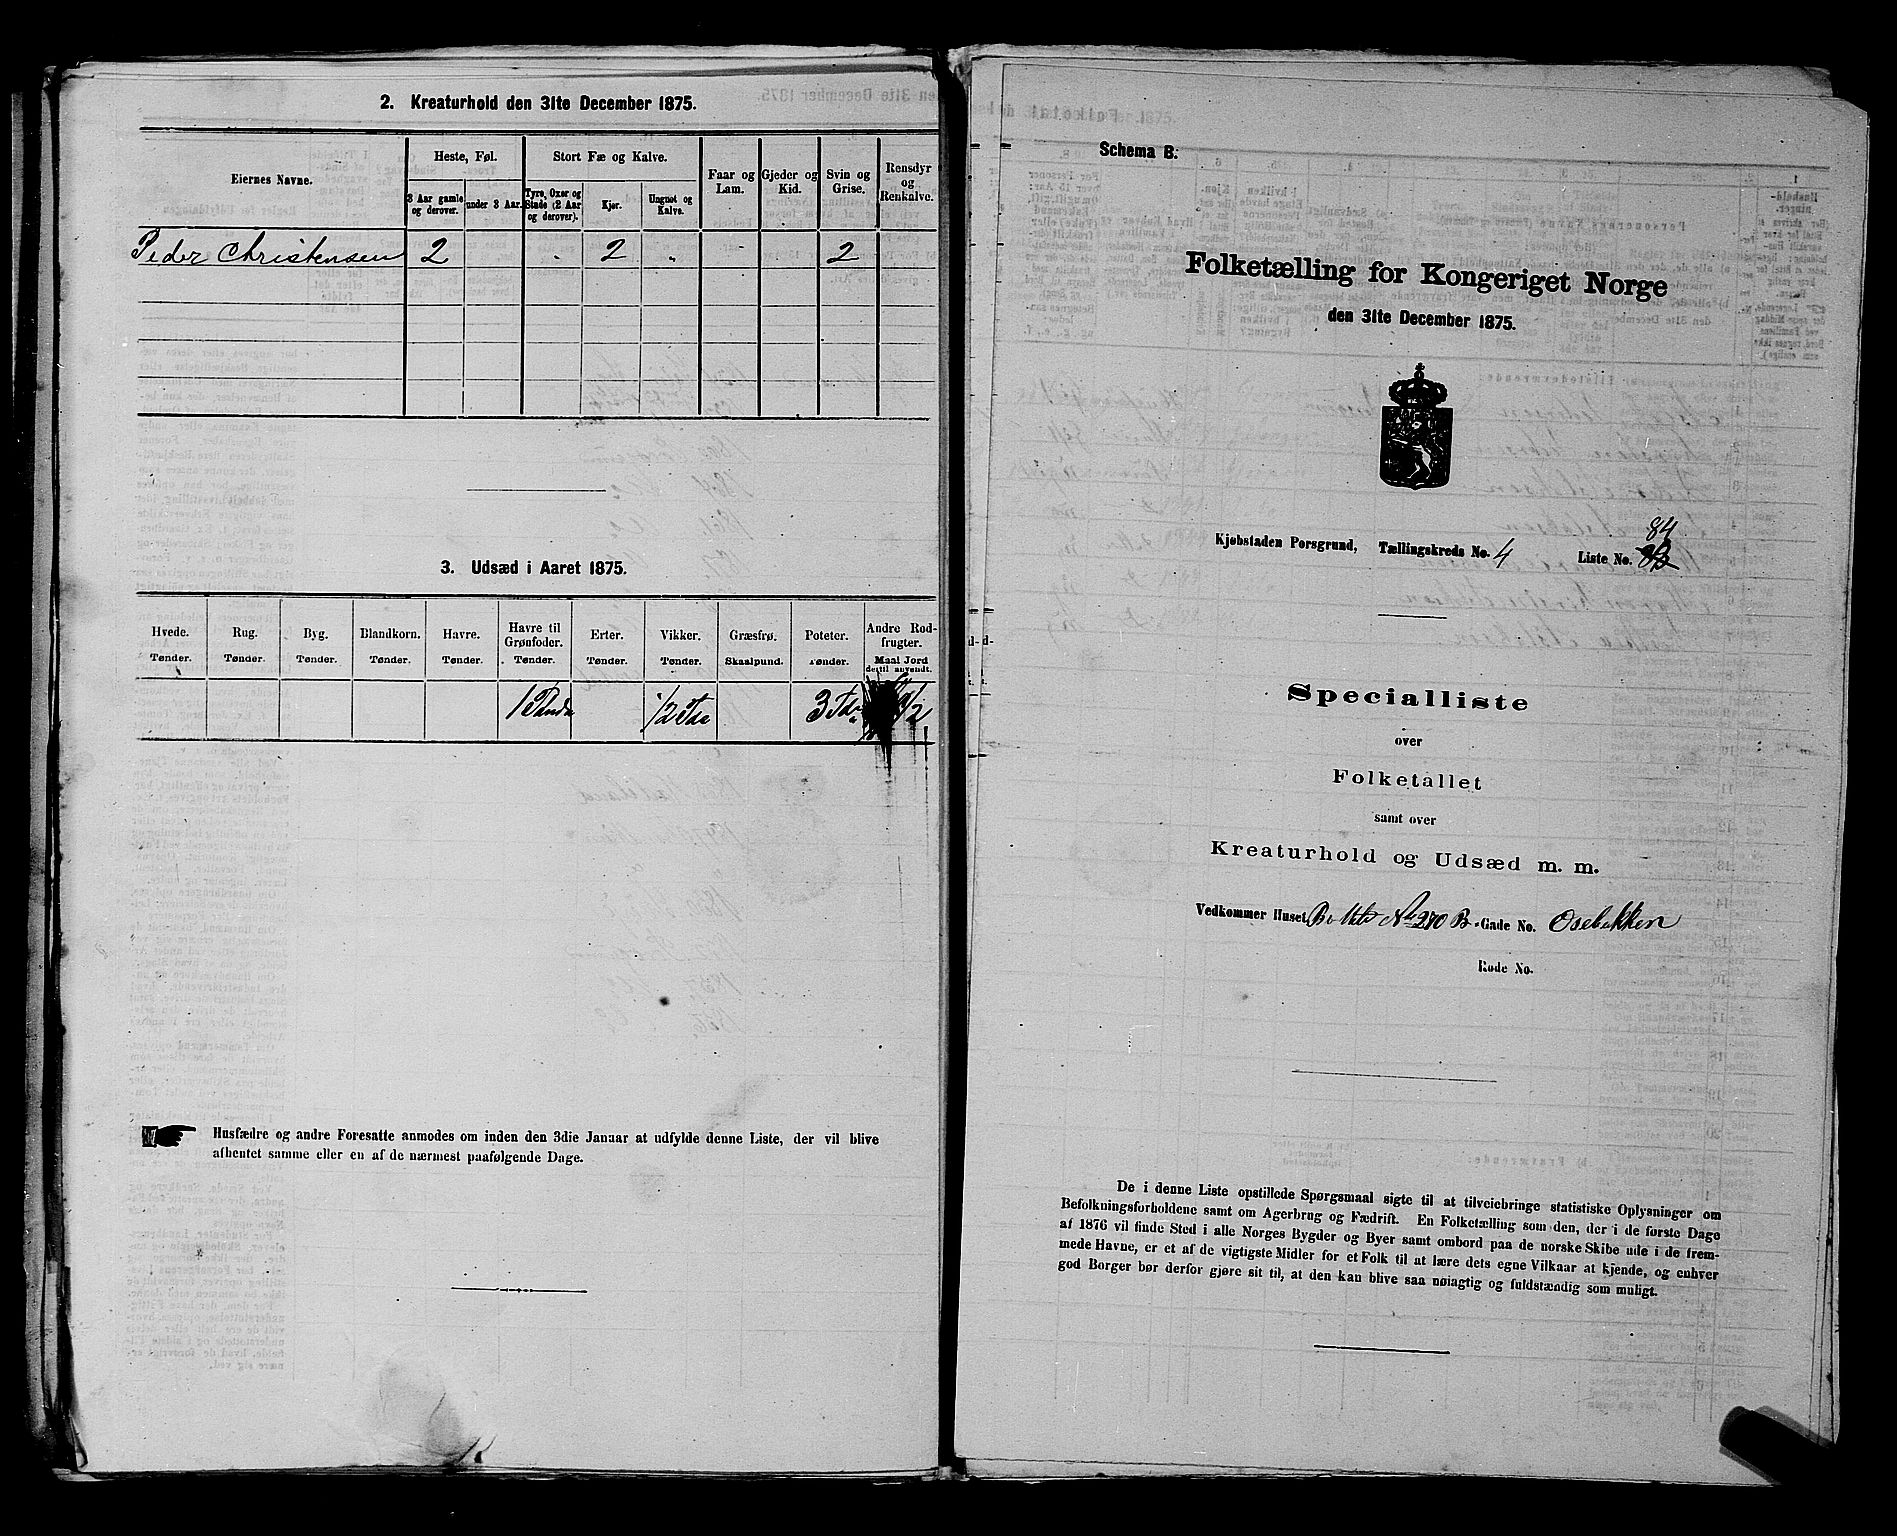 2. Kreaturhold den 31te December 1875.
Eiernes Navne.
Heste, Føl.
Stort Fæ og Kalve.
Faar og Lam.
Gjeder og Kid.
Svin og Grise.
Rensdyr og Renkalve.
3 Aar gamle og derover.
under 3 Aar.
Tyre, Oxer og Stude (2 Aar og derover).
Kjør.
Ungnøt og Kalve.
Peder Christensen 2 2 " 2
3. Udsæd i Aaret 1875.
Hvede. Rug. Byg. Blandkorn. Havre. Havre til Grønfoder. Erter. Vikker. Græsfrø. Poteter. Andre Rodfrugter.
Tønder. Tønder. Tønder. Tønder. Tønder. Tønder. Tønder. Tønder. Skaalpund. Tønder. Maal Jord dertil anvendt.
1 1/2 Tdr 3 Tdr 1/2
Husfædre og andre Foresatte anmodes om inden den 3die Januar at udfylde denne Liste, der vil blive
afhentet samme eller en af de nærmest paafølgende Dage.
Schema B.
Folketælling for Kongeriget Norge
den 31te December 1875.
84
Kjøbstaden Porsgrund, Tællingskreds No. 4 Liste No.
Specialliste
over
Folketallet
samt over
Kreaturhold og Udsæd m. m.
Vedkommer Huset No 270 B. Gade No. Osebakken
Rode No.
De i denne Liste opstillede Spørgsmaal sigte til at tilveiebringe statistiske Oplysninger om
Befolkningsforholdene samt om Agerbrug og Fædrift. En Folketælling som den, der i de første Dage
af 1876 vil finde Sted i alle Norges Bygder og Byer samt ombord paa de norske Skibe ude i de frem-
mede Havne, er et af de vigtigste Midler for et Folk til at lære dets egne Vilkaar at kjende, og enhver
god Borger bør derfor gjøre sit til, at den kan blive saa nøiagtig og fuldstændig som muligt.